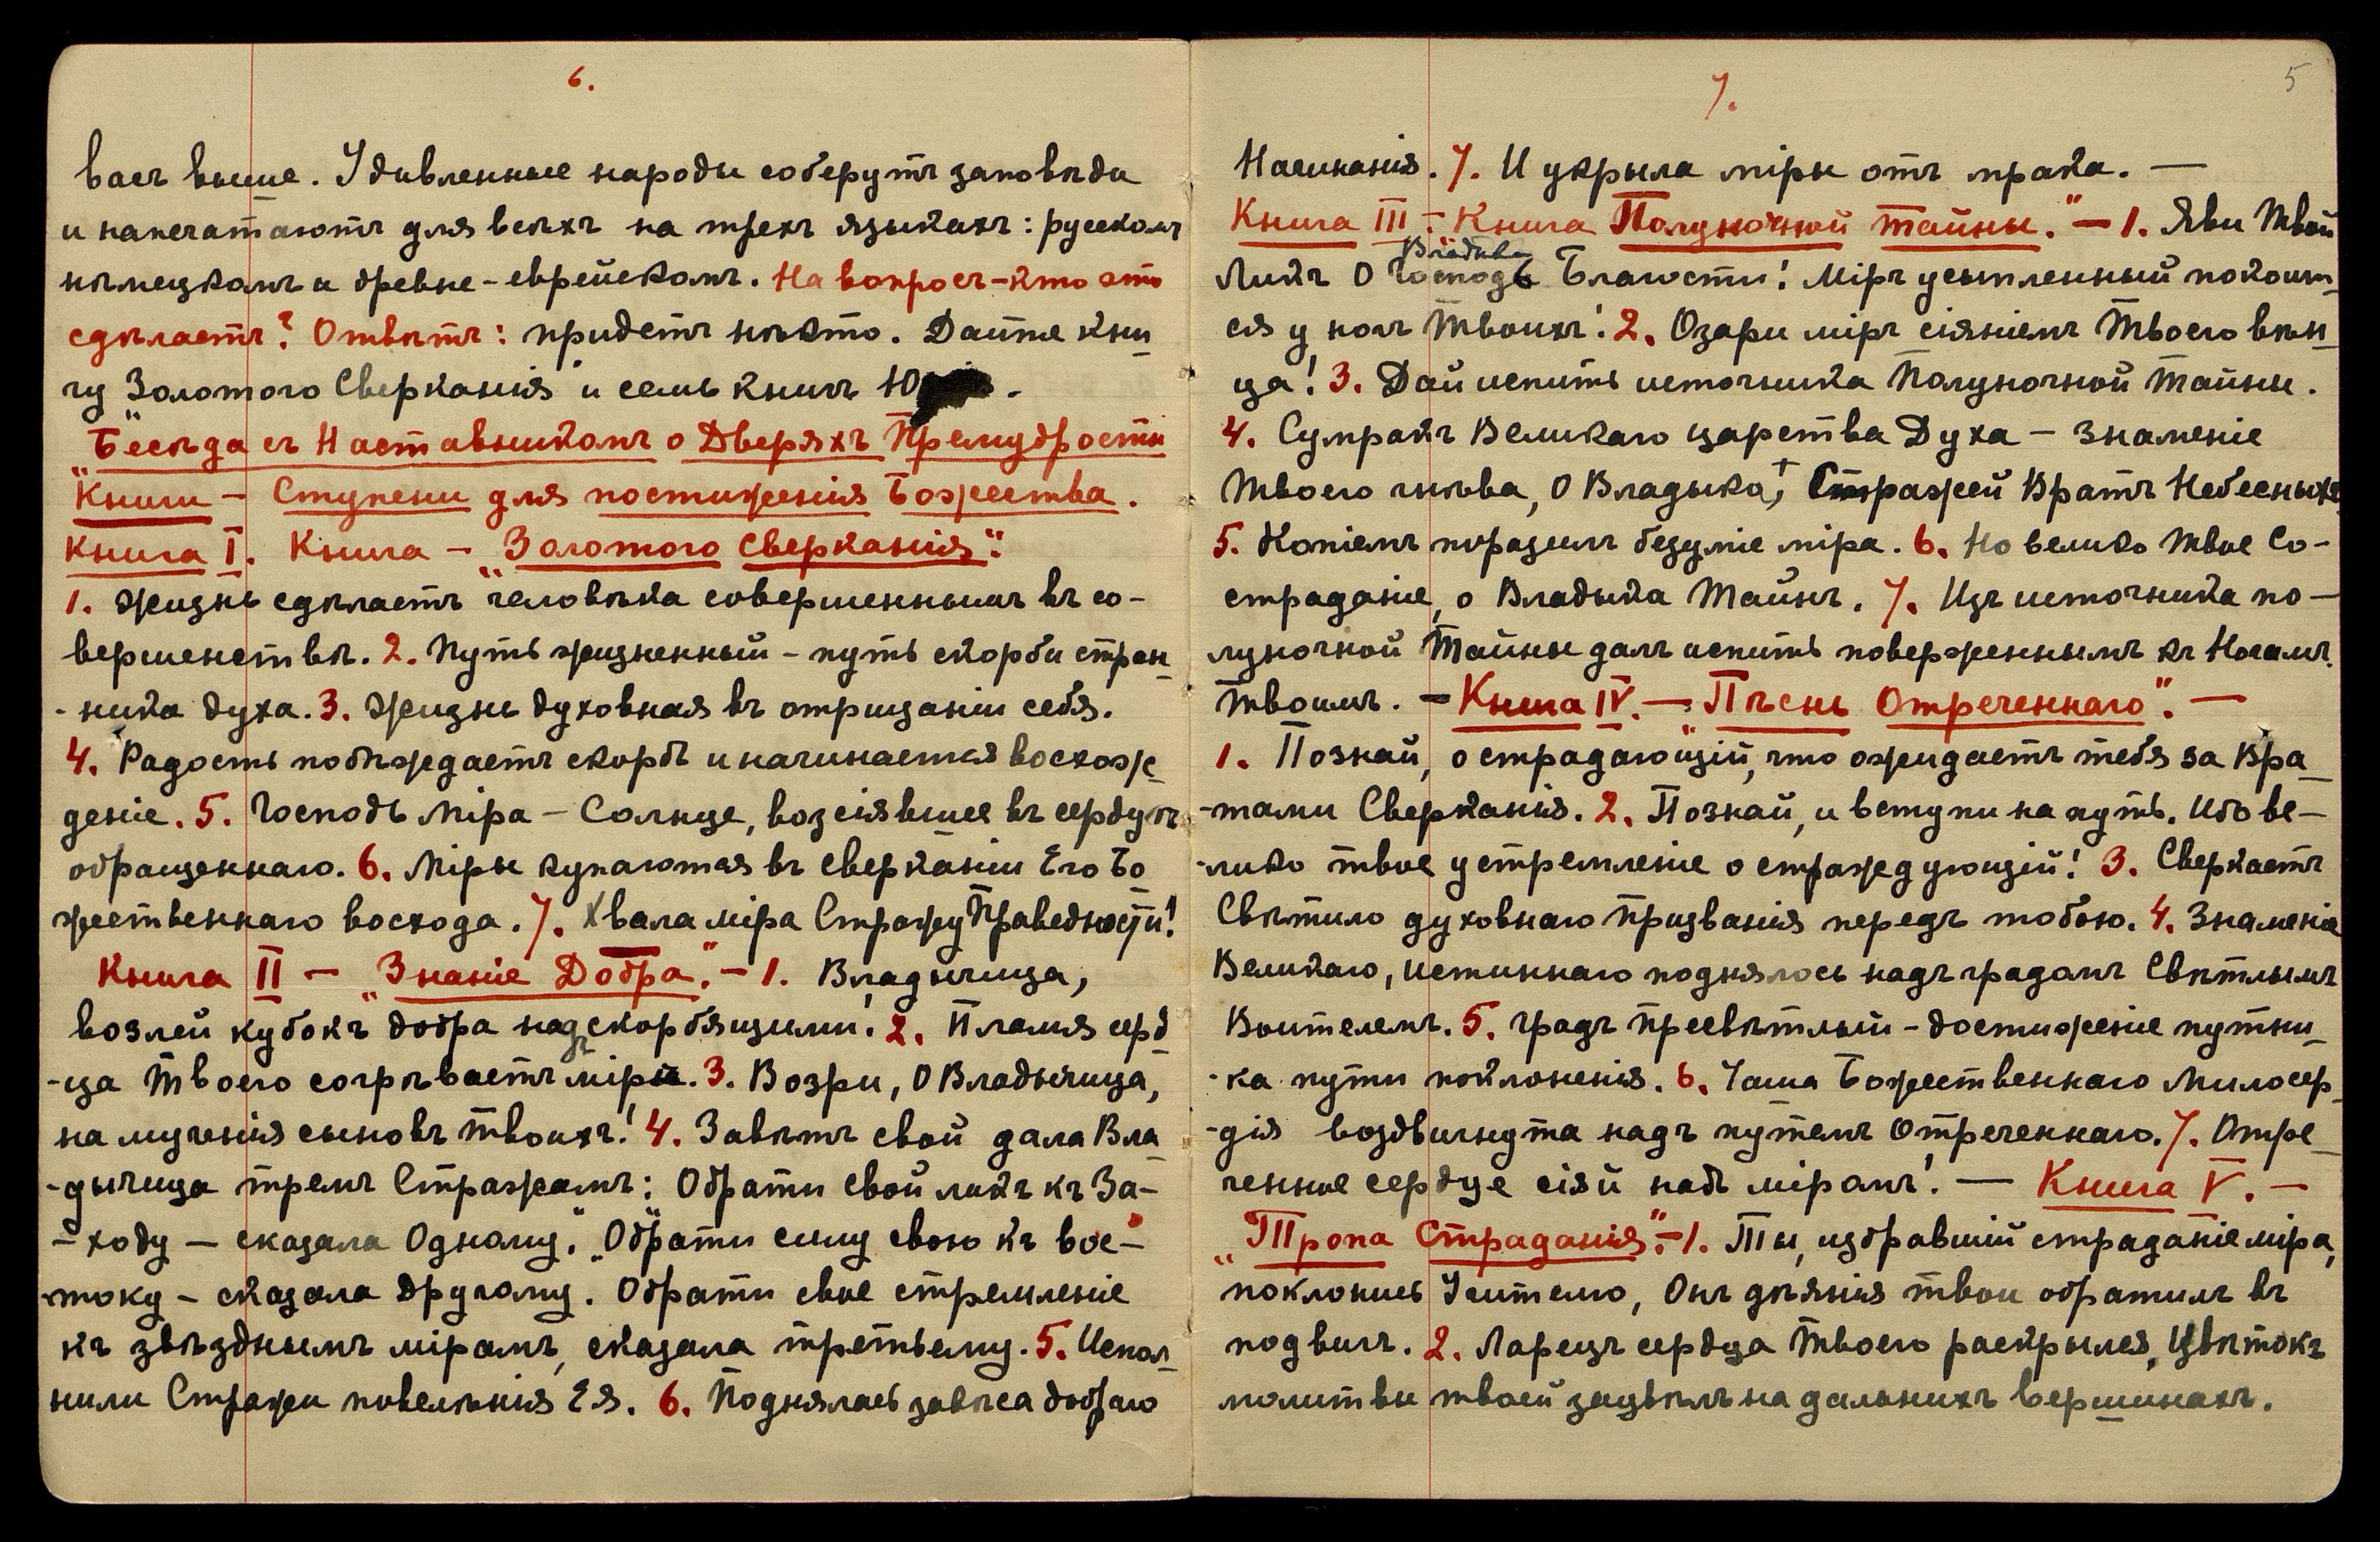 6.
васъ выше. Удивленные народы соберутъ заповѣди
и напечатаютъ для всѣхъ на трехъ языкахъ: русскомъ
нѣмецкомъ и древне-еврейскомъ. На вопросъ-кто это
сдѣлаетъ? Отвѣтъ: придетъ нѣкто. Дайте кни
гу „Золотого Сверканія" и семь книгъ Ю
Бесѣда съ Наставникомъ о Дверяхъ Премудрости
"Книги - Ступени для постиженія Божества.
Книга I. Книга - „Золотого Сверканія".
1. Жизнь сдѣлаетъ человѣка совершеннымъ въ со-
вершенствѣ. 2. Путь жизненный - путь скорби стран
-ника духа. 3. Жизнь духовная въ отрицаніи себя.
4. Радость побѣждаетъ скорбь и начинается восхож
деніе. 5. Господь Міра - Солнце, возсіявшее въ сердцѣ
обращеннаго. 6. Міры купаются въ сверканіи Его Бо
жественнаго восхода. 7. Хвала міра Стражу Праведности!
Книга II - „Знаніе Добра". - 1. Владычица,
возлей кубокъ добра надъ скорбящими! 2. Пламя серд
-ца Твоего согрѣваетъ міры. 3. Возри, О Владычица,
на мученія сыновъ Твоихъ! 4. Завѣтъ свой дала Вла
-дычица тремъ Стражамъ: Обрати свой ликъ къ За-
-ходу - сказала Одному". „Обрати силу свою къ вос-
-току - сказала Другому. Обрати свое стремленіе
къ звѣзднымъ мірамъ, сказала третьему. 5. Испол
нили Стражи повелѣнія Ея. 6. Поднялась завѣса добраго
7.
5
Начинанія. 7. И укрыла міры отъ мрака. —
Книга III - Книга „Полуночной Тайны." - 1. Яви Твой
Владыка
Ликъ О Господь Благости! Міръ усыпленный покоит
ся у ногъ Твоихъ! 2. Озари міръ сіяніемъ Твоего вѣн
ца! 3. Дай испить источника Полуночной Тайны.
4. Сумракъ Великаго царства Духа - Знаменіе
Твоего гнѣва, О Владыка, Стражей Вратъ Небесныхъ
5. Копіемъ поразилъ безуміе міра. 6. Но велико Твое Со-
страданіе, о Владыка Тайнъ. 7. Изъ источника по-
луночной Тайны далъ испить поверженнымъ къ Ногамъ
Твоимъ. - Книга IV. - „Пѣснь Отреченнаго". -
1. Познай, о страдающій, что ожидаетъ тебя за Вра
-тами Сверканія. 2. Познай, и вступи на путь. Ибо ве-
-лико твое устремленіе о страждующій! 3. Сверкаетъ
Свѣтило духовнаго Призванія передъ тобою. 4. Знаменіе
Великаго, истиннаго поднялось надъ градомъ Свѣтлымъ
Воителемъ. 5. Градъ Пресвѣтлый - достиженіе путни
-ка пути поклоненія. 6. Чаша Божественнаго Милосер
-дія воздвигнута надъ путемъ Отреченнаго. 7. Отре
ченное сердце сіяй надъ міромъ! - Книга V. -
„Тропа Страданія". - 1. Ты, избравшій страданіе міра,
поклонись Учителю, Онъ дѣянія твои обратилъ въ
подвигъ. 2. Ларецъ сердца Твоего раскрылся, Цвѣтокъ
молитвы твоей зацвѣлъ на дальнихъ вершинахъ.